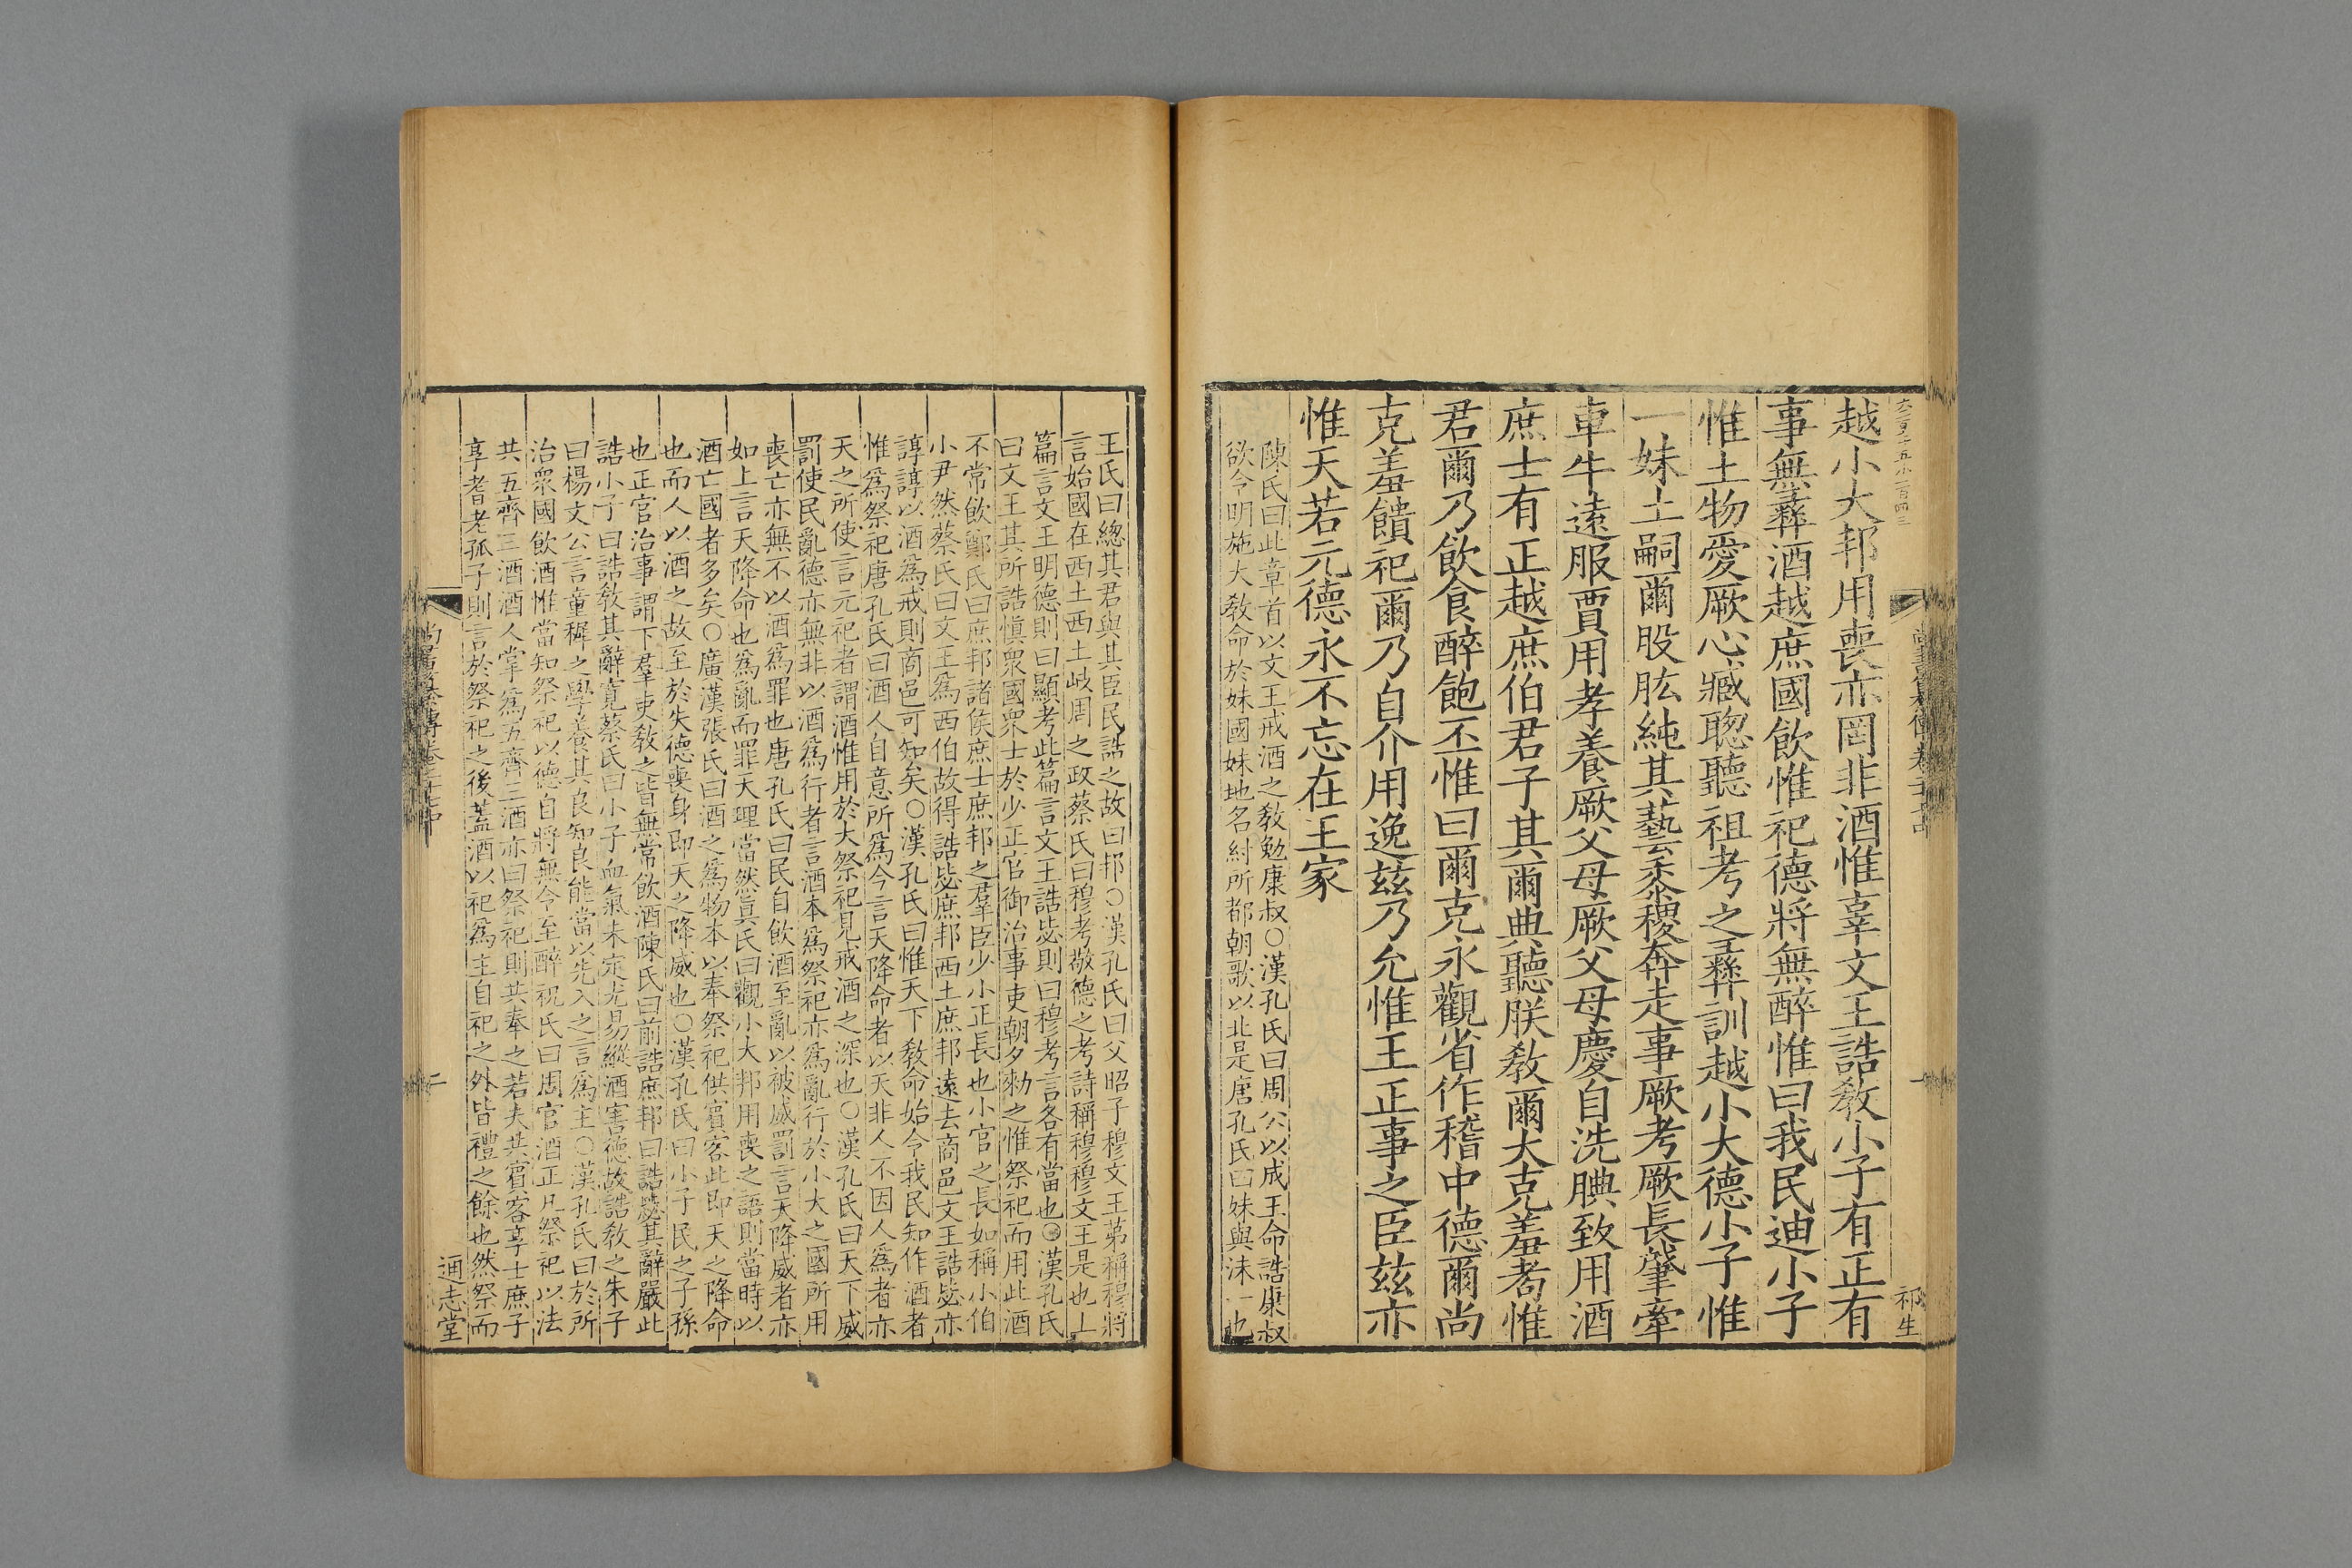 越小大邦用喪亦罔非酒惟辜文王誥敎小子有正有
事無彝酒越庶國飲惟祀德將無醉惟曰我民迪小子
惟土物愛厥心臧聰聽祖考之彝訓越小大德小子惟
一妹土嗣爾股肱純其藝黍稷奔走事厥考厥長肇牽
車牛遠服賈用孝養厥父母厥父母慶自洗腆致用酒
庶士有正越庶伯君子其爾典聽朕敎爾大克羞耇惟
君爾乃飲食醉飽丕惟曰爾克永觀省作稽中德爾尚
克羞饋祀爾乃自介用逸茲乃允惟王正事之臣茲亦
惟天若元德永不忘在王家
陳氏曰此章首以文王戒酒之敎勉康叔○漢孔氏曰周公以成王命誥康叔
欲今明施大敎命於妹國妹地名紂所都朝歌以北是唐孔氏曰妹與沬一也
祁生
王氏曰總其君與其臣民誥之故曰邦○漢孔氏曰父昭子穆文王第稱穆將
言始國在西土西土岐周之政蔡氏曰穆考敬德之考詩稱穆穆文王是也上
篇言文王明德則曰顯考此篇言文王誥毖則曰穆考言各有當也○漢孔氏
曰文王其所誥愼衆國衆士於少正官御治事吏朝夕勑之惟祭祀而用此酒
不常飲鄭氏曰庶邦諸侯庶士庶邦之羣臣少小正長也小官之長如稱小伯
小尹然蔡氏曰文王爲西伯故得誥毖庶邦西土庶邦遠去商邑文王誥毖亦
諄諄以酒爲戒則商邑可知矣○漢孔氏曰惟天下敎命始令我民知作酒者
惟爲祭祀唐孔氏曰酒人自意所爲今言天降命者以天非人不因人爲者亦
天之所使言元祀者謂酒惟用於大祭祀見戒酒之深也○漢孔氏曰天下威
罰使民亂德亦無非以酒爲行者言酒本爲祭祀亦爲亂行於小大之國所用
喪亡亦無不以酒爲罪也唐孔氏曰民自飲酒至亂以被威罰言天降威者亦
如上言天降命也爲亂而罪天理當然眞氏曰觀小大邦用喪之語則當時以
酒亡國者多矣○廣漢張氏曰酒之爲物本以奉祭祀供賓客此即天之降命
也而人以酒之故至於失德喪身即天之降威也○漢孔氏曰小子民之子孫
也正官治事謂下羣吏敎之皆無常飲酒陳氏曰前誥庶邦曰誥毖其辭嚴此
誥小子曰誥敎其辭寬蔡氏曰小子血氣未定尤易縱酒害德故誥敎之朱子
曰楊文公言童穉之學養其良知良能當以先入之言爲主○漢孔氏曰於所
治衆國飲酒惟當知祭祀以德自將無令至醉祝氏曰周官酒正凡祭祀以法
共五齊三酒酒人掌爲五齊三酒亦曰祭祀則共奉之若夫共賓客享士庶子
享耆老孤子則言於祭祀之後蓋酒以祀爲主自祀之外皆禮之餘也然祭而
二
通志堂